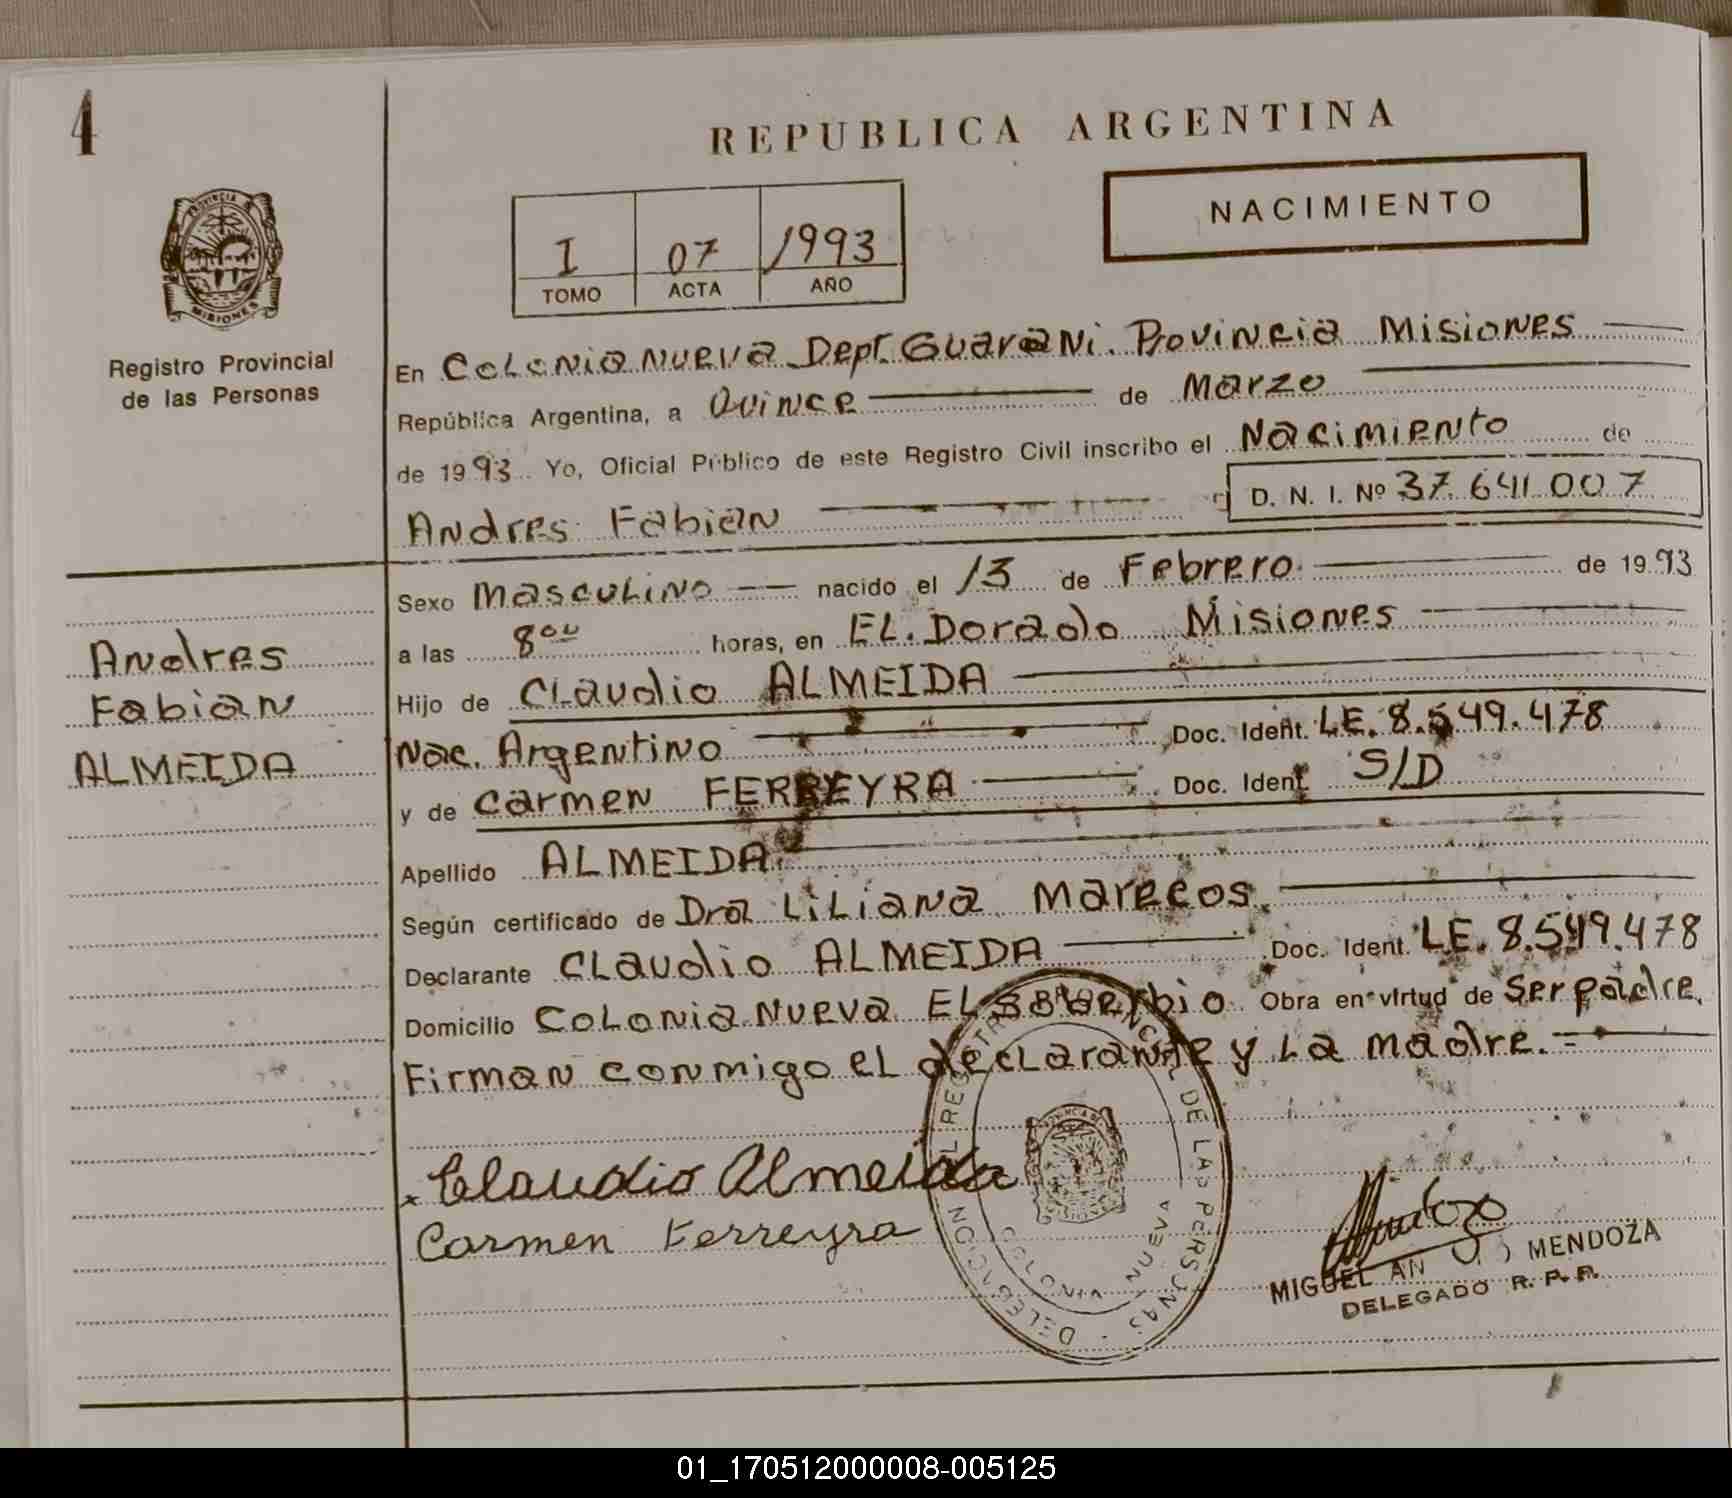 4
REPUBLICA ARGENTINA
NACIMIENTO
I 07 1993
TOMO ACTA AÑO
PROVINCIA D
MISIONES
Registro Provincial
de las Personas
En Colonia Nueva Dept. Guarani. Provincia Misiones
República Argentina, a Quince de Marzo
de 1993 Yo, Oficial Público de este Registro Civil inscribo el Nacimiento de
D. N. I. Nº 37.641.007
Andres Fabian
Sexo Masculino nacido el 13 de Febrero de 1993
a las 8 00 horas, en EL. Dorado Misiones
Hijo de Claudio ALMEIDA
Nac. Argentino Doc. Ident. LE. 8.549.478
y de Carmen FERREYRA Doc. Ident. S/D
Apellido ALMEIDA
Según certificado de Dra Liliana Marecos.
Declarante Claudio ALMEIDA Doc. Ident. LE. 8.549.478
Domicilio Colonia Nueva El Soberbio Obra en virtud de Ser padre.
Firman conmigo el declarante y la madre.=
Andres
Fabian
ALMEIDA
x Claudio Almeida
Carmen Ferreyra
REGISTRO PROVINCIAL DE LAS PERSONAS - DELEGACION
COLONIA NUEVA
MIGUEL AN MENDOZA
DELEGADO R. P. P.
01_170512000008-005125